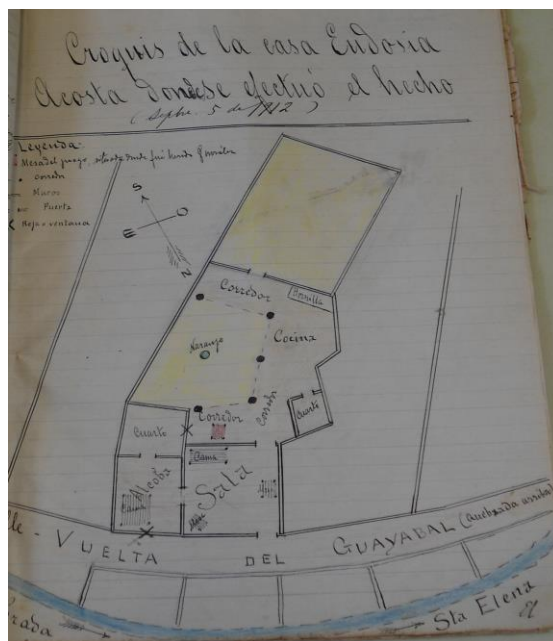 Croquis de la casa Eudosia
Acosta donde se efectuó el hecho
(Sepbre. 5 de 1912)
Leyenda:
Mesa del juego, situada donde fué herido González
Muros
Puerta
Reja o ventana
S
O
E
N
Corredor
Hornilla
Cocina
Naranjo
Corredor
Corredor
Cuarto
Cuarto
Cama
Alcoba
Sala
Cama
VUELTA DEL GUAYABAL (Quebrada arriba)
Sta Elena